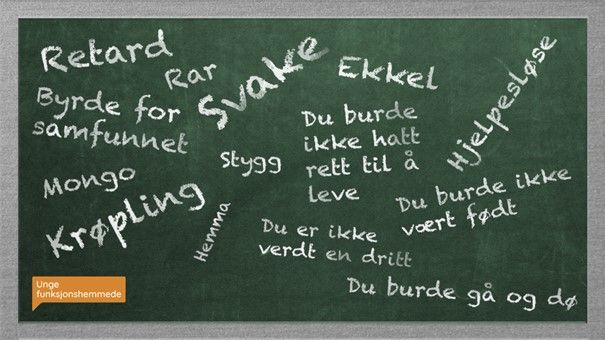 Retard
Rar
Svake
Ekkel
Hjelpesløse
Byrde for
samfunnet
Du burde
ikke hatt
rett til å
leve
Stygg
Mongo
Krøpling
Hemma
Du burde ikke
vært født
Du er ikke
verdt en dritt
Du burde gå og dø
Unge
funksjonshemmede